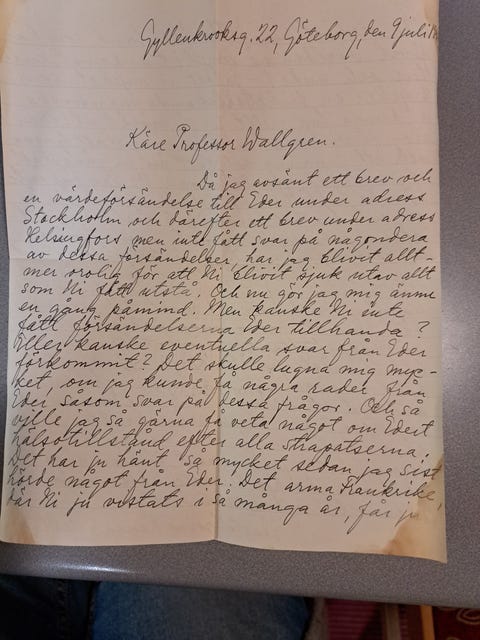 Gyllenkrooksg. 22, Göteborg, den 9 juli
Käre Professor Wallgren.
Då jag avsänt ett brev och
en värdeförsändelse till Eder under adress
Stockholm och därefter ett brev under adress
Helsingfors men inte fått svar på någondera
av dessa försändelser, har jag blivit allt-
mer orolig för att Ni blivit sjuk utav allt
som Ni fått utstå. Och nu gör jag mig ännu
en gång påmind. Men kanske Ni inte
fått försändelserna Eder tillhanda?
Eller kanske eventuella svar från Eder
förkommit? Det skulle lugna mig myc-
ket, om jag kunde få några rader från
Eder såsom svar på dessa frågor. Och så
ville jag så gärna få veta något om Edert
hälsotillstånd efter alla strapatserna.
Det har ju hänt så mycket sedan jag sist
hörde något från Eder. Det arma Frankrike,
där Ni ju vistats i så många år, får ju